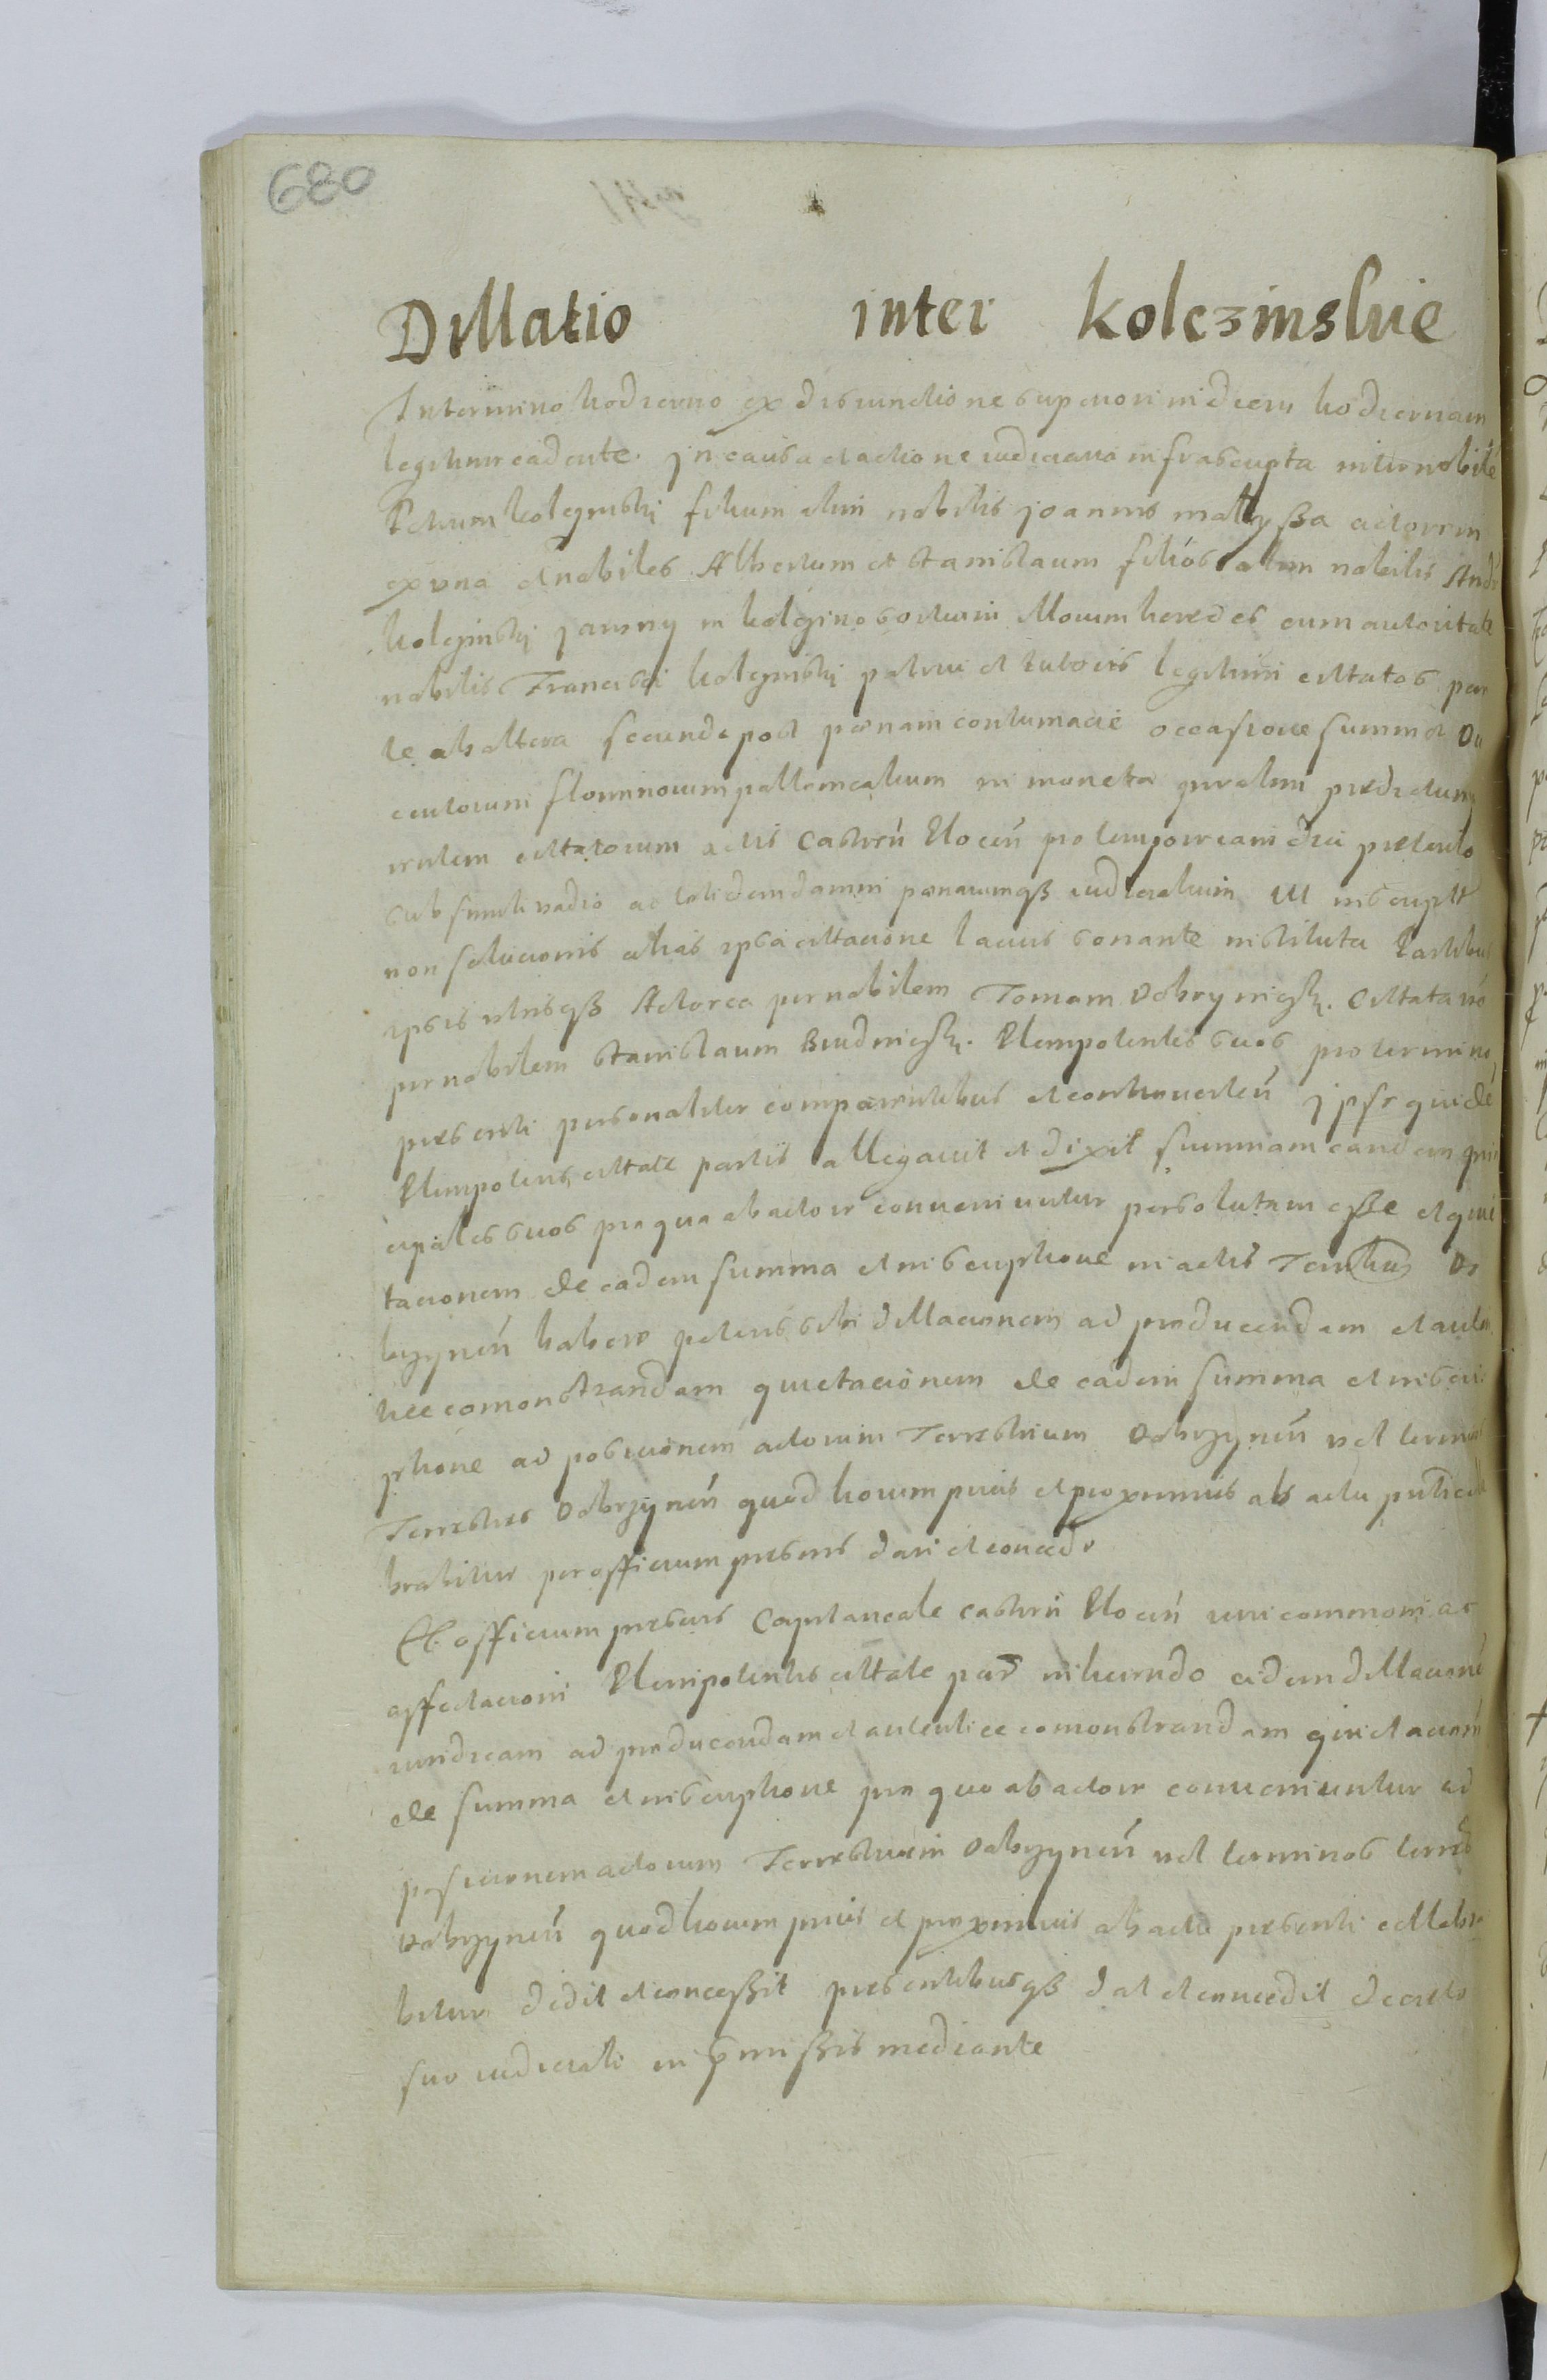 680
Dillatio inter kolczinskie
In termino hodierno ex disiunctione superiori in diem hodiernam
legitime cadente. In causa et actione iudiciaria infrascripta inter nobilē
Petrum kolczinskj filium olim nobilis joannis mattyssa actorem
ex una et nobiles Albertum et Stanislaum filios olim nobilis Andr
kolczinskj in kolczino sortium illorum heredes cum autoritate
nobilis Francisci kolczinskj patrui et tutoris legitimi cittatos par
te ab altera secunde post pœnam contumacie occasione summæ Du
centorum florinorum pollonicalium in moneta
cittatorum actis Castreñ Ploceñ pro tempore iam diu præterito
sub simili vadio ac totidem damni pœnarumqß iudicialium ut
non solucionis alias ipsa cittacione lacius sonante instituta Partibus
ipsis utrisqß Actorea per nobilem Tomam Dobrynieskj. Cittata vō
per nobilem Stanislaum Plenipotentes suos pro termino
presenti personaliter comparentibus et controverteñ Ipse quidē
Plenipotens cittate partis allegavit et dixit summam eandem prin
cipales suos pro qua ab actore conveniuntur persolutam esse et qui
tacionem de eadem summa et inscriptione in actis Do
brzyneñ habere petens sibi dillacionem ad producendam et auten
tice comonstrandam quietacionem de eadem summa et inscri
ptione ad posicionem actorum Terrestrium Dobrzyneñ vel terminos
Terrestres Dobrzyneñ quod horum prius et proximius ab actu pñti cele
brabitur per officium presens dari et concedi
Et officium presens Capitaneale castreñ Ploceñ
affectacioni Plenipotentis cittate part inherendo eidem dillacionē
iuridicam ad producendam et autentice comonstrandam quietacionē
de summa et inscriptione pro quo ab actore conveniuntur ad
posicionem actorum Terrestrium Dobrzyneñ vel terminos terres
Dobrzyneñ quod horum prius et proximius ab actu presenti cellebra
bitur dedit et concessit presentibusqß dat et concedit decreto
suo iudiciali in pmissis mediante